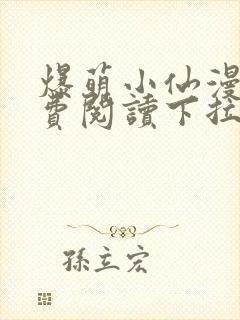 爆萌小仙漫
費閱讀下拉
孫立宏